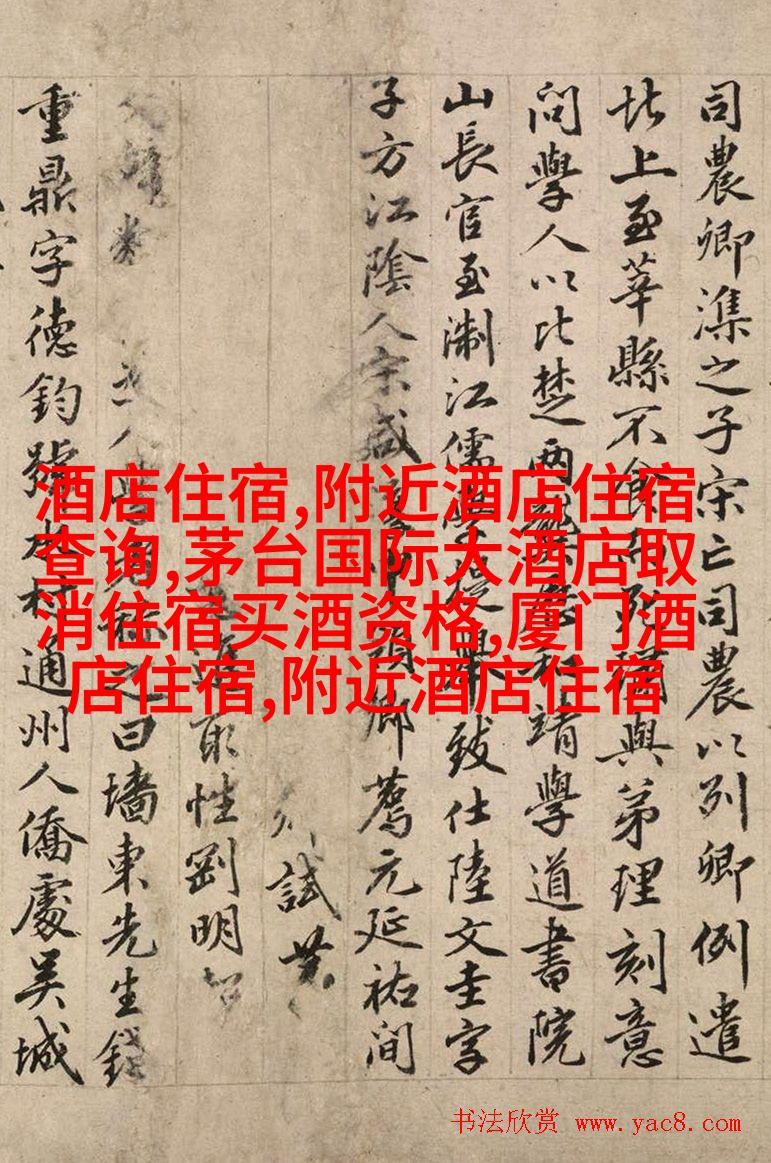 司農卿潗之子宋亡司農以列卿例遣
北上至莘縣不食而死與弟理刻意
問學人以比楚兩和靖學道書院
山長官至淛江儒學提舉致仕陸文圭字
子方江陰人宋咸淳中預鄉薦元延祐間
試
取性劉明
人之曰墻東先生錢
重鼎字德鈞號水村通州人僑處吳城
酒店住宿,附近酒店住宿
查询,茅台国际大酒店取
消住宿买酒资格,厦门酒
店住宿,附近酒店住宿
书法欣赏 www.yac8.com